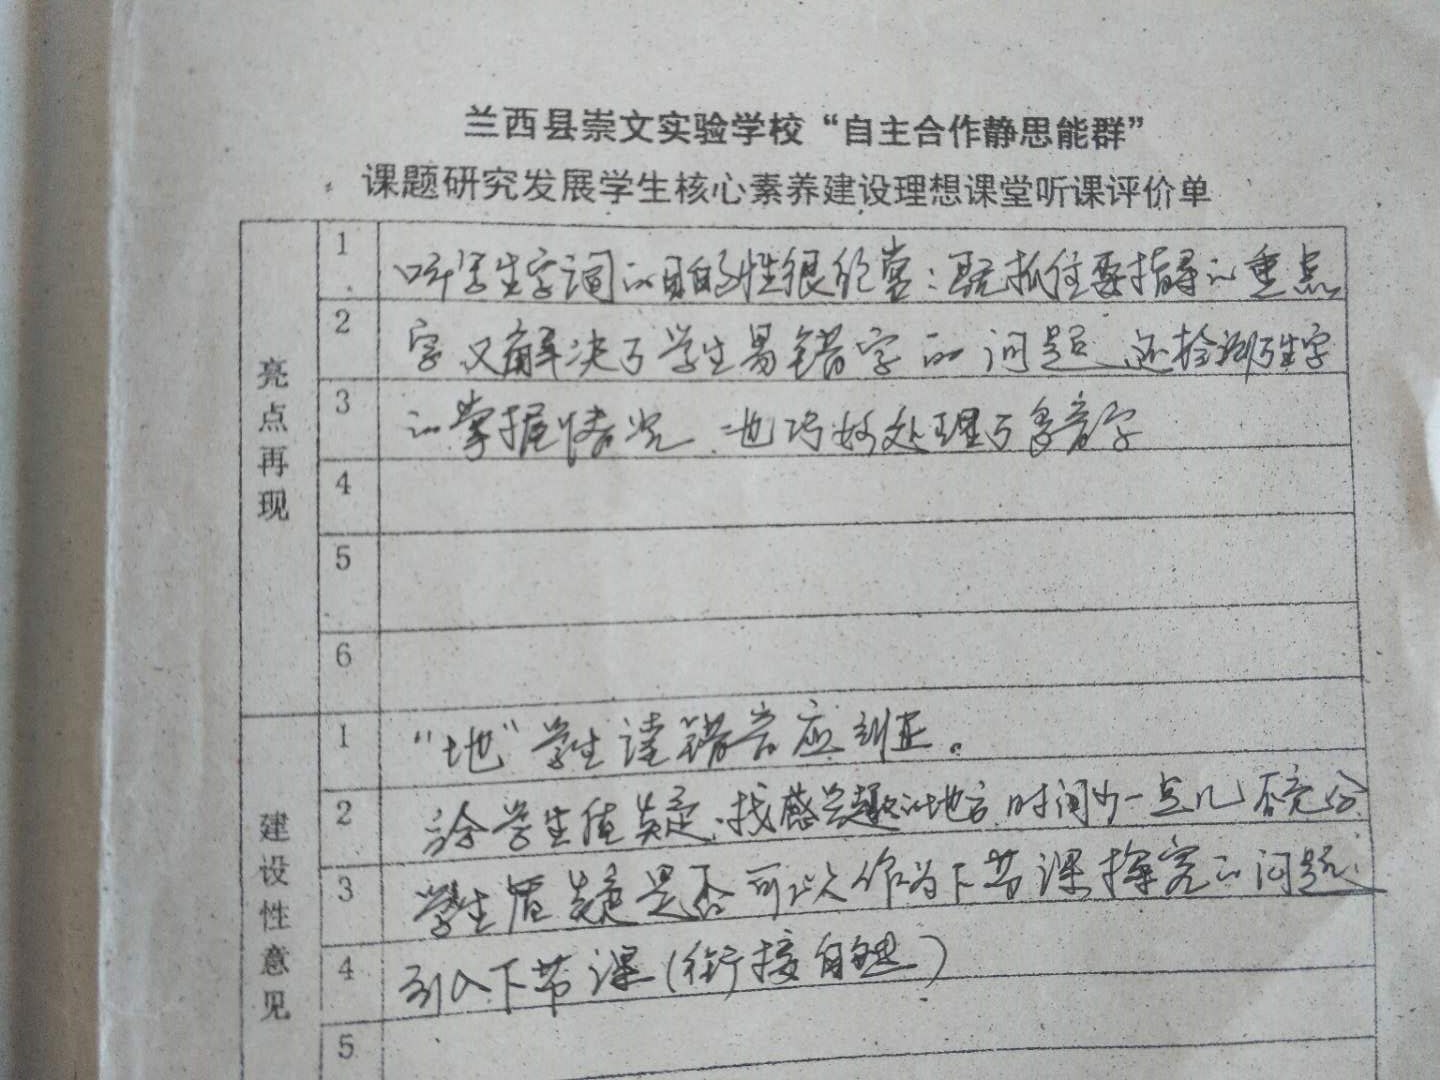 兰西县崇文实验学校“自主合作静思能群”
课题研究发展学生核心素养建设理想课堂听课评价单
亮点再现
1 听写生字词的目的性很强：既抓住要指导的重点
2 字又解决了学生易错字的问题、还检测了生字
3 的掌握情况、也巧妙处理了多音字
4
5
6
建设性意见
1 “地”学生读错音应纠正。
2 给学生质疑、找感兴趣的地方、时间少一点儿不充分
3 学生质疑是否可以作为下节课探究的问题、
4 引入下节课（衔接自然）
5